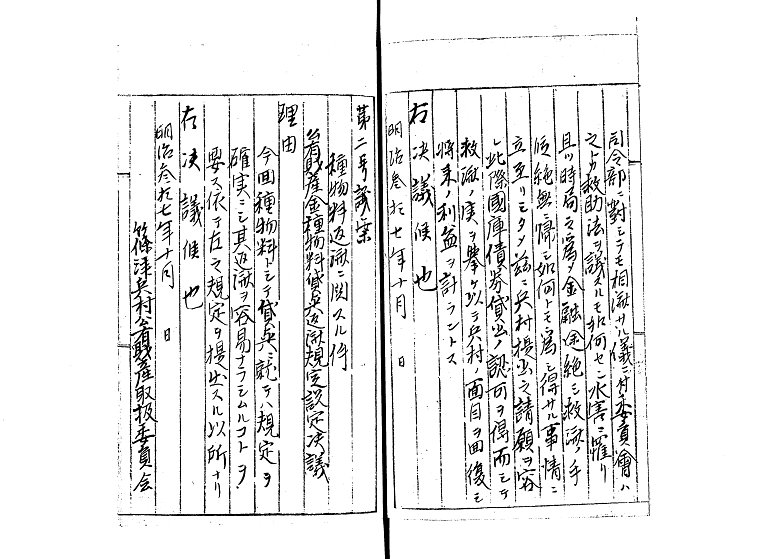 司令部ニ對シテモ相濟サル儀ニ付委員會ハ
之カ救助法ヲ議スルモ如何セン水害ニ罹リ
且ツ時局ノ為メ金融全絶シ救濟ノ手
段絶無ニ帰シ如何トモ為シ得サル事情ニ
立至リシタメ茲ニ兵村提出之請願ヲ容
レ此際國庫債券貸出ノ認可ヲ得而シテ
救濟ノ実ヲ擧ケ以テ兵村ノ面目ヲ回復シ
将来ノ利益ヲ計ラントス
右決議候也
明治参拾七年十月 日
第二号議案
種物料返濟ニ関スル件
公有財産金種物料貸與返濟規定設定决議
理由
今回種物料トシテ貸與ニ就テハ規定ヲ
確実ニシ其返濟ヲ容易ナラシムルコトヲ
要ス依テ左之規定ヲ提出スル以所ナリ
右决議候也
明治参拾七年十月 日
篠津兵村公有財産取扱委員会